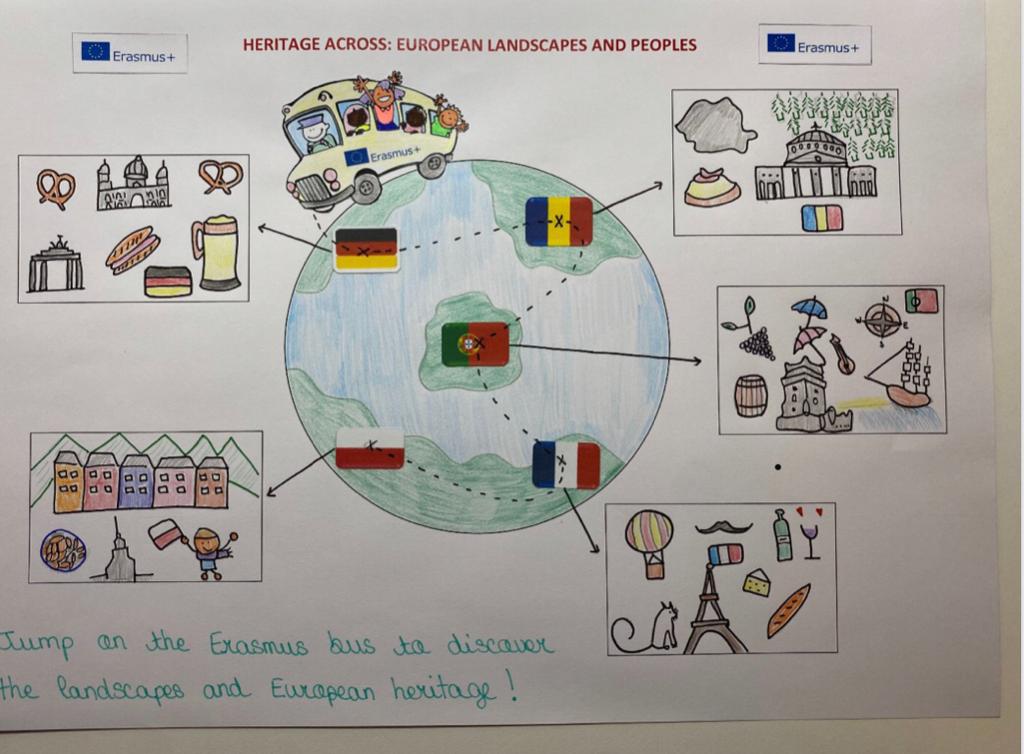 Erasmus+
HERITAGE ACROSS: EUROPEAN LANDSCAPES AND PEOPLES
Erasmus+
Erasmus+
N
W E
S
Jump on the Erasmus bus to discover
the landscapes and European heritage!